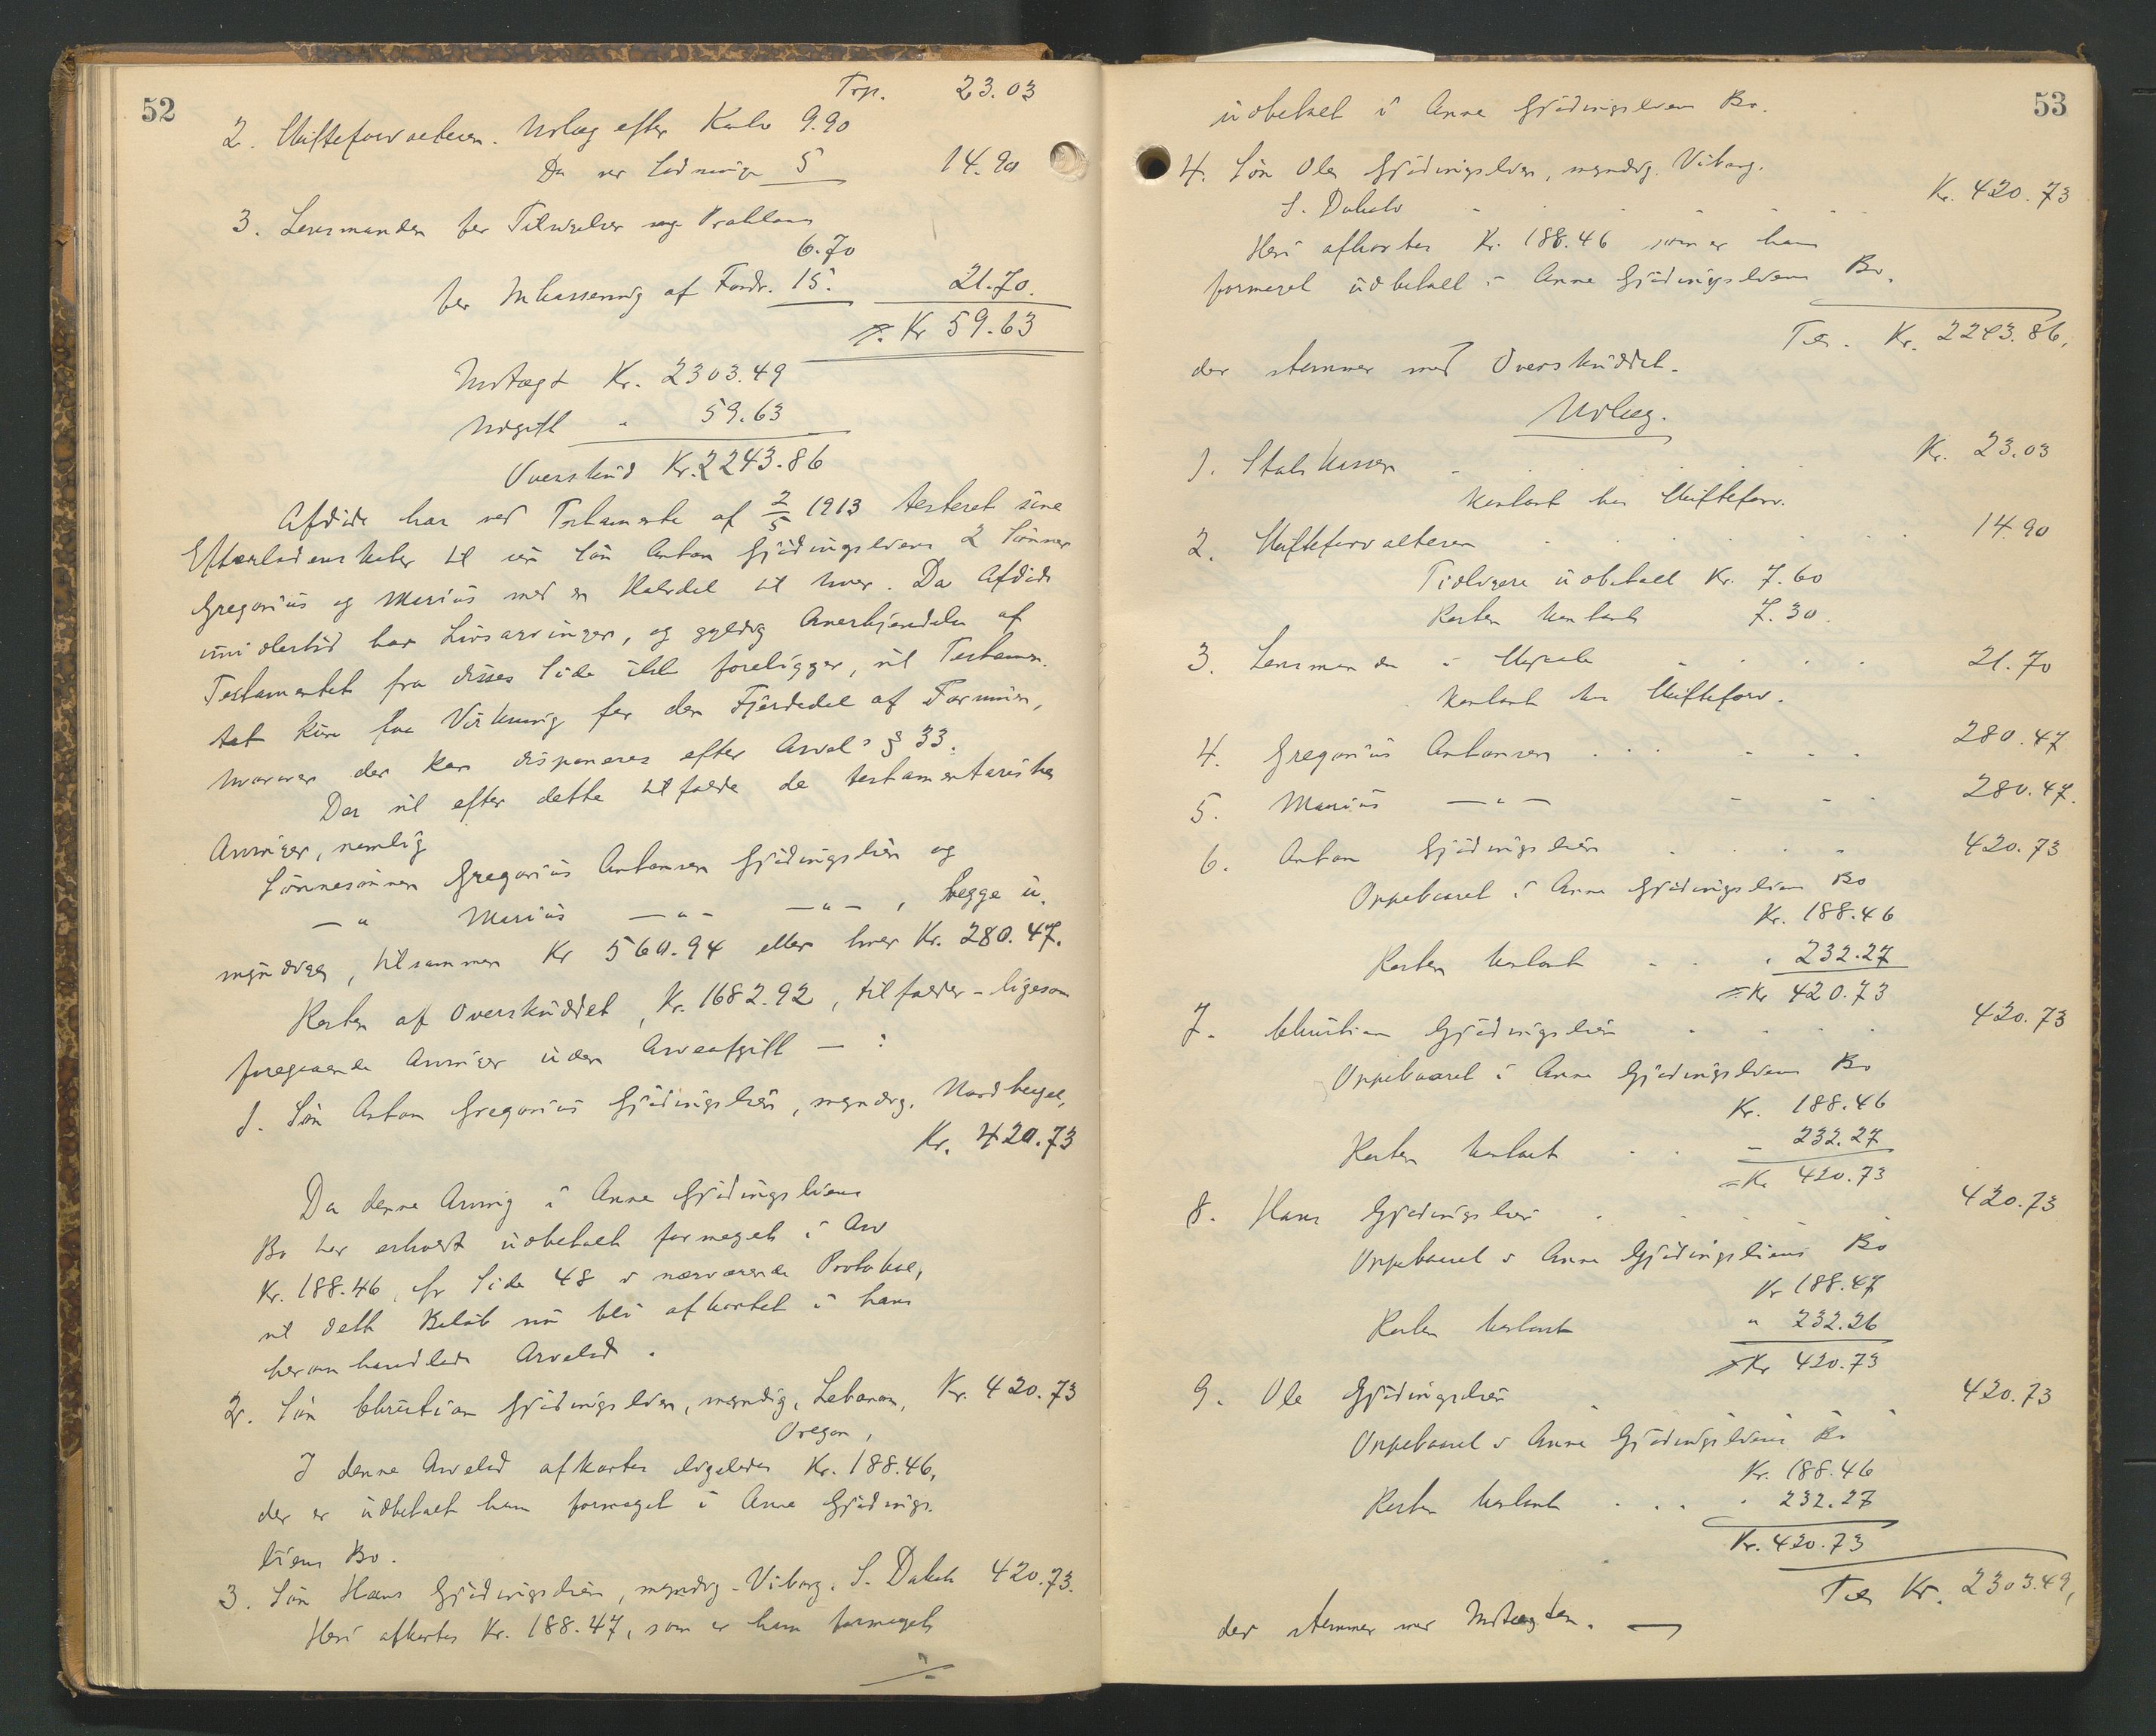 52
Trp. 23.03
2. Skifteforvalteren. Utlæg efter Konto 9.90
Do ved Lodninge 5 14.90
3. Lensmanden for Tilsigelser og Proklama
6.70
for Inkassering af Fordr. 15. 21.70.
= Kr 59.63
Indtægt Kr. 2303.49
Udgift " 59.63
Overskud Kr. 2243.86
Afdøde har ved Testamente af 2/5 1913 testeret sine
Efterladenskaber til sin Søn Anton Gjødingsliens 2 Sønner
Gregorius og Marius med en Halvdel til hver. Da Afdøde
imidlertid har Livsarvinger, og gyldig Anerkjendelse af
Testamentet fra disses Side ikke foreligger, vil Testamen-
tet kun faa Virkning for den Fjerdedel af Formuen,
hvorover der kan disponeres efter Arvel's § 33.
Der vil efter dette tilfalde de testamentariske
Arvinger, nemlig
Sønnesønnen Gregorius Antonsen Gjødingslien og
— " Marius — " — — " — , begge u.
myndige, tilsammen Kr 560.94 eller hver Kr. 280.47.
Resten af Overskuddet, Kr. 1682.92, tilfalder - ligesom
foregaaende Arvinger uden Arveafgift — :
1. Søn Anton Gregorius Gjødingslien, myndig, Nordberget,
Kr. 420.73
Da denne Arving i Anne Gjødingsliens
Bo har erholdt udbetalt formeget i Arv
Kr. 188.46, cfr Side 48 i nærværende Protokol,
vil dette Beløb nu bli afkortet i hans
heromhandlede Arvelod.
2. Søn Christian Gjødingslien, myndig, Lebanon, Kr. 420.73
Oregon,
I denne Arvelod afkortes ligeledes Kr. 188.46,
der er udbetalt ham formeget i Anne Gjødings-
liens Bo.
3. Søn Hans Gjødingslien, myndig - Viborg, S. Dakota 420.73.
Heri afkortes Kr. 188.47, som er ham formeget
53
udbetalt i Anne Gjødingsliens Bo.
4. Søn Ole Gjødingslien, myndig, Viborg,
S. Dakota - - - - - Kr. 420.73
Heri afkortes Kr. 188.46 som er ham
formeget udbetalt i Anne Gjødingsliens Bo.
Tils. Kr. 2243.86,
der stemmer med Overskuddet.
Udlæg.
1. Statskassen - - - - Kr. 23.03
Kontant hos Skifteforv.
2. Skifteforvalteren - - - - 14.90
Tidligere udbetalt Kr. 7.60
Resten kontant 7.30.
3. Lensmanden i Skjaak - - - 21.70
Kontant hos Skifteforv.
4. Gregorius Antonsen - - - 280.47
5. Marius — " — - - - 280.47.
6. Anton Gjødingslien - - - 420.73
Oppebaaret i Anne Gjødingsliens Bo
Kr. 188.46
Resten kontant - - " 232.27
= Kr 420.73
7. Christian Gjødingslien - - - 420.73
Oppebaaret i Anne Gjødingsliens Bo
Kr. 188.46
Resten kontant - - 232.27
= Kr 420.73
8. Hans Gjødingslien - - - 420.73
Oppebaaret i Anne Gjødingsliens Bo
Kr 188.47
Resten kontant " 232.26
= Kr 420.73
9. Ole Gjødingslien - - - 420.73
Oppebaaret i Anne Gjødingsliens Bo
Kr. 188.46
Resten kontant - - - " 232.27
Kr. 420.73
Tils Kr. 2303.49,
der stemmer med Indtægten. —